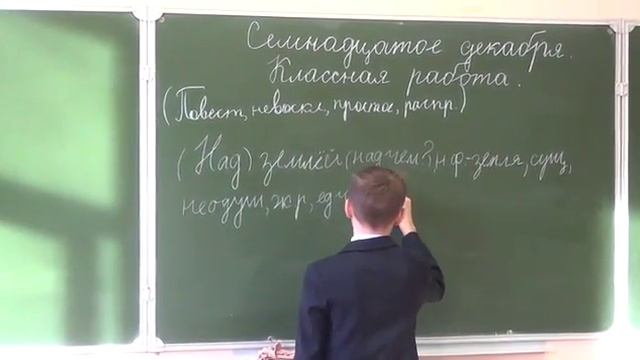 Семнадцатое декабря.
Классная работа.
(Повест, невоскл, простое, распр.)
(Над) землёй (над чем?), н ф-земля, сущ,
неодуш, ж р, ед